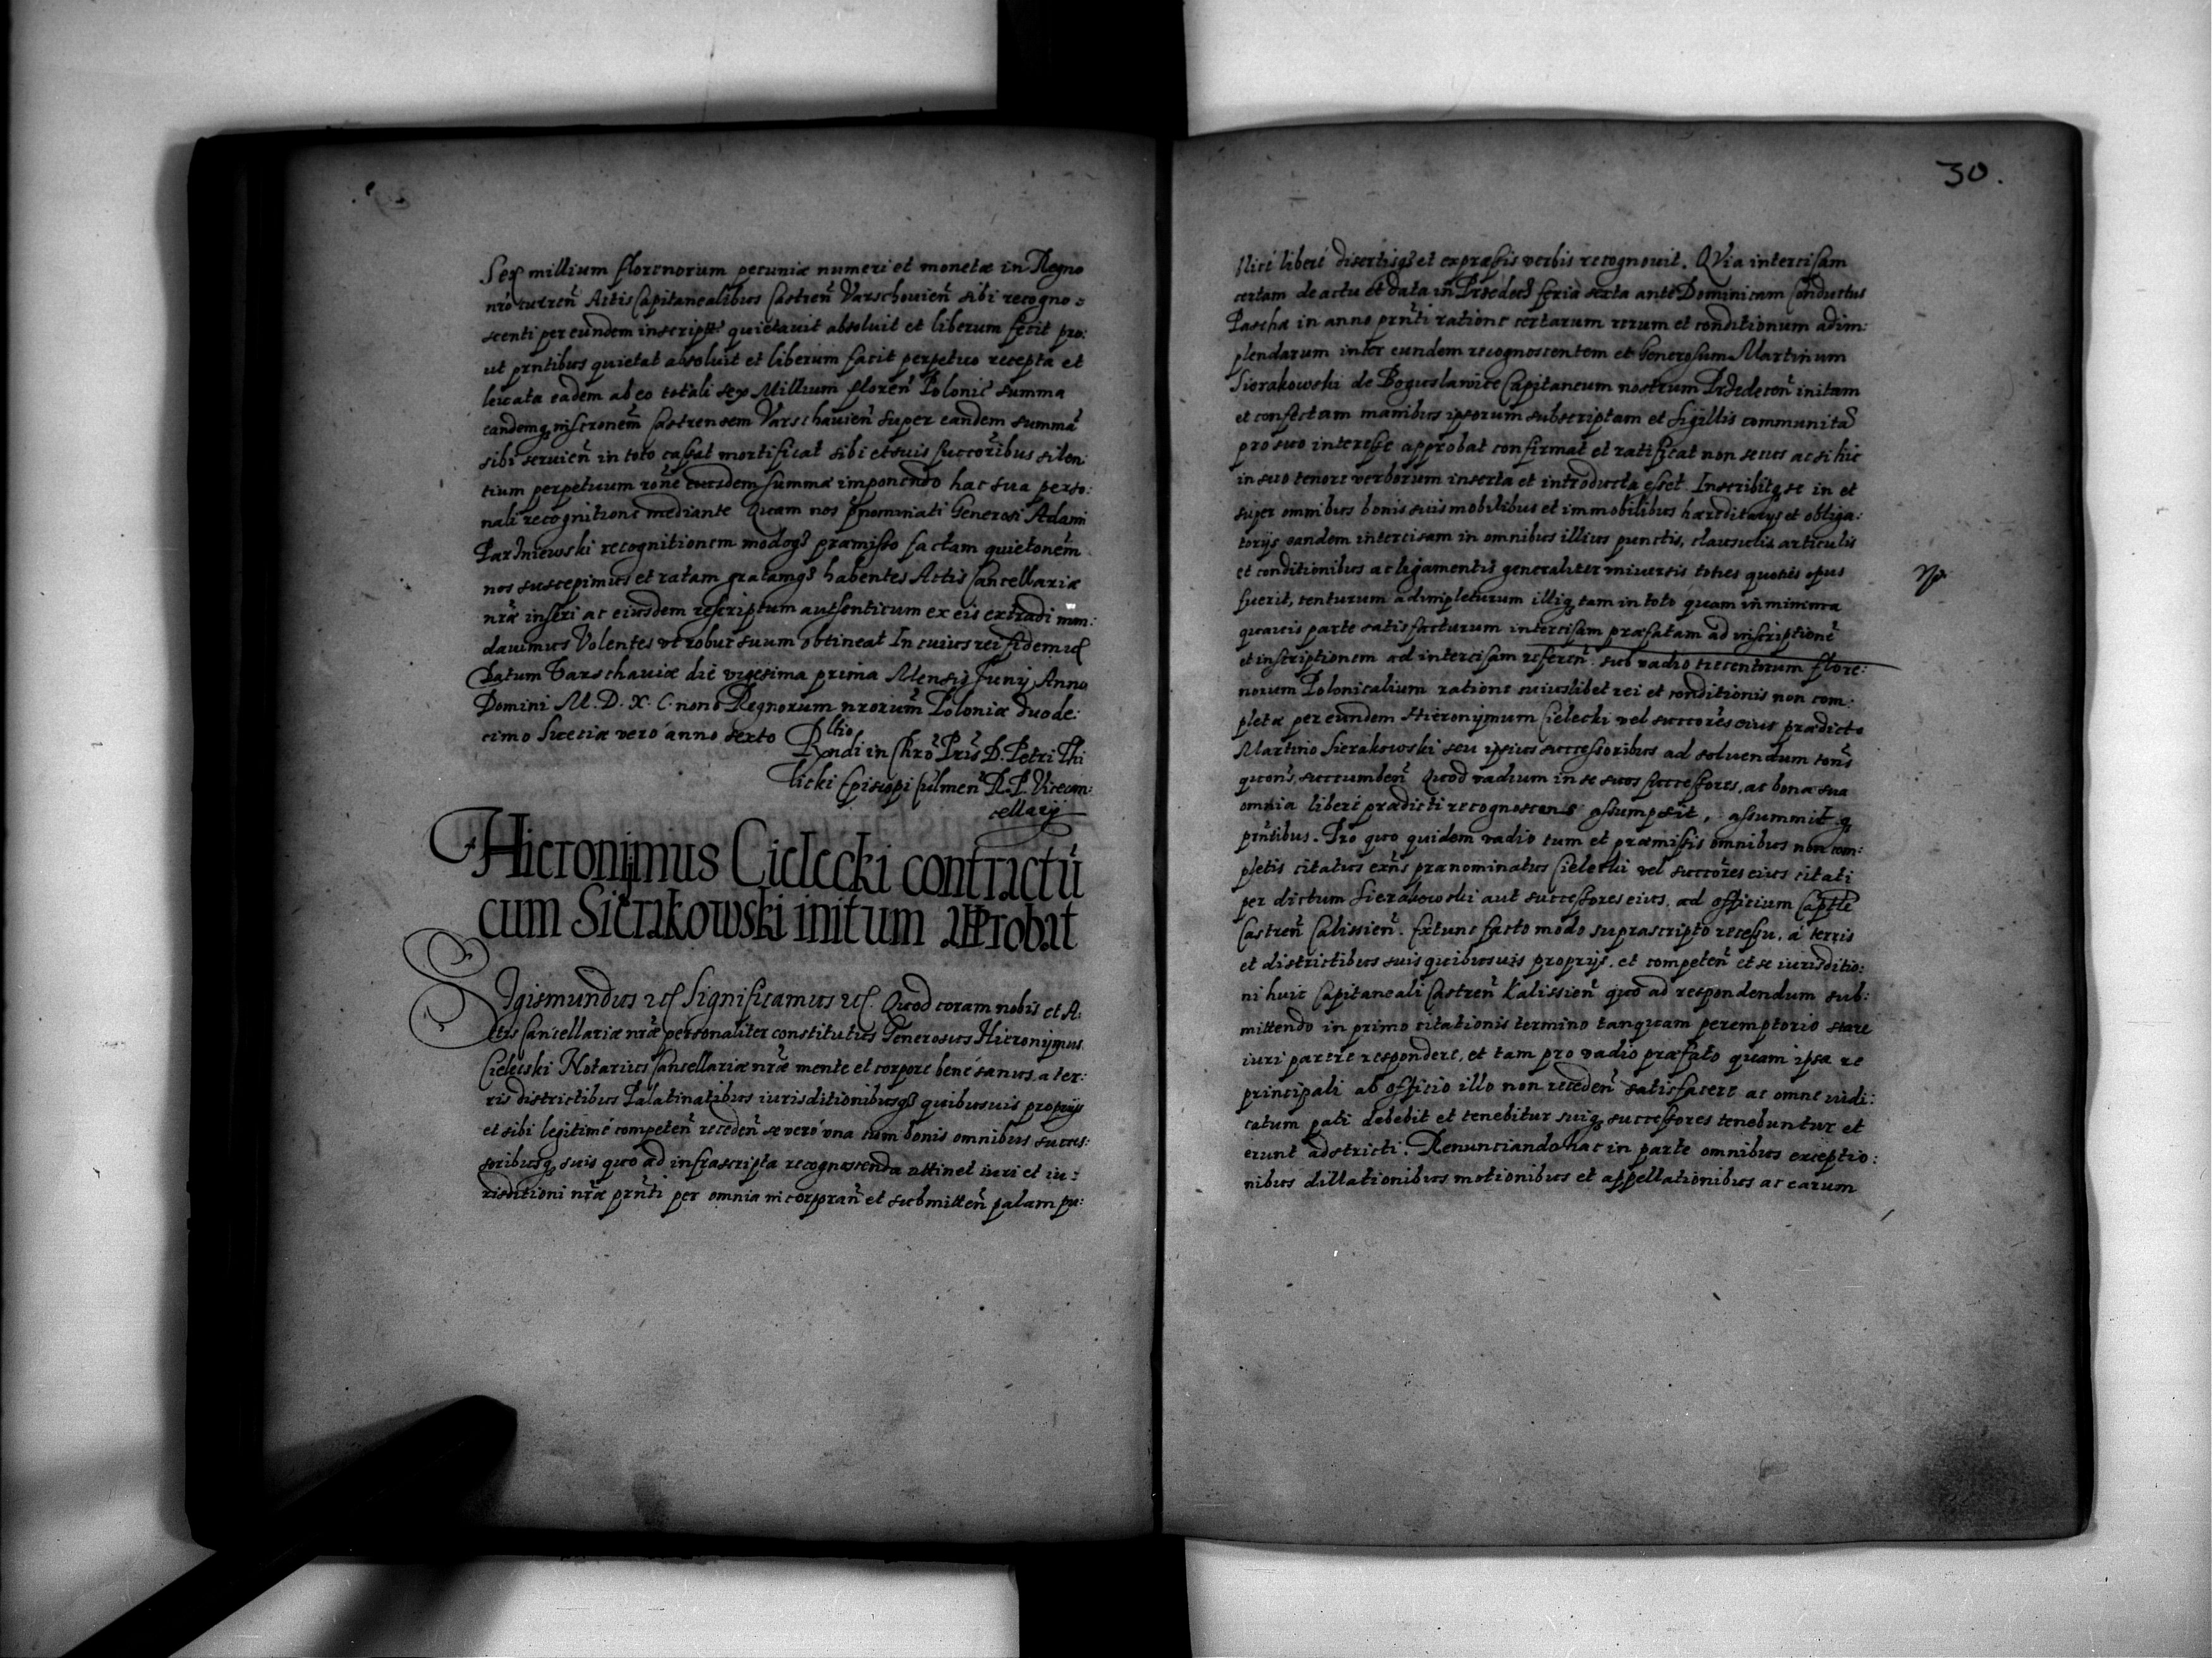 Sex millium florenorum pecuniæ numeri et monetæ in Regno
nr̃o curren̄ Actis Capitanealibus Castren̄ Varschouien̄ sibi recogno:
scenti per eundem inscript quietauit absoluit et liberum fecit pro:
ut prñtibus quietat absoluit et liberum facit perpetuo recepta et
leuata eadem ab eo totali sex Millium floren̄ Polonic̄ summa
eandemq inscr̃onem̄ Castrensem Varschauien̄ super eandem summā
sibi seruien̄ in toto cassat mortificat sibi et suis succōribus silen:
tium perpetuum rōne eiusdem summæ imponendo hac sua perso:
nali recognitione mediante Quam nos p̄nominati Generosi Adami
Parzniewski recognitionem modoqȝ præmisso factam quietonēm
nos suscepimus et ratam gratamqȝ habentes Actis Cancellariæ
nr̃æ inscri ac eiusdem rescriptum authenticum ex eis extradi man:
dauimus Volentes vt robur suum obtineat In cuius rei fidem ec
Datum Varschauiæ die vigesima prima Mensis Junij Anno
Domini M. D. X. C. nono Regnorum nrorum̄ Poloniæ duode:
cimo Sueciæ vero anno sexto Rltio
Rendi in Chrō Pris̄ D. Petri Thi
licki Episcopi Culmen̄ R. P. Vicecan:
cellarij
Hieronijmus Cielecki contractū
cum Sierakowski initum approbat
SIgismundus ec Significamus ec. Quod coram nobis et A:
ctis Cancellariæ nr̃æ personaliter constitutus Generosus Hieronijmus
Cielecki Notarius Cancellariæ nr̃æ mente et corpore bene sanus a ter:
ris districtibus Palatinatibus iurisditionibusqȝ quibusuis proprijs
et sibi legitime competen̄ receden̄ se vero vna cum bonis omnibus succes:
soribusq suis quo ad infrascripta recognoscenda attinet iuri et iu:
risditioni nr̃æ prñti per omnia incorporan̄ et submitten̄ palam pu:
30.
blice libere disertisqȝ et expressis verbis recognouit. QVia intercisam
certam de actu et data in Przedecȝ feria sexta ante Dominicam Conductus
Pascha in anno prñti ratione certarum rerum et conditionum adim:
plendarum inter eundem recognoscentem et Generosum Martinum
Sierakowski de Boguslawice Capitaneum nostrum Przedecen̄ initam
et confectam manibus ipsorum subscriptam et sigillis communitā
pro suo interesse approbat confirmat et ratificat non secus ac si hic
in suo tenore verborum inserta et introducta esset. Inscribitq se in et
super omnibus bonis suis mobilibus et immobilibus hæreditarijs et obliga:
torijs eandem intercisam in omnibus illius punctis, clausulis articulis
et conditionibus ac ligamentis generaliter vniuersis toties quoties opus
fuerit, tenturum adimpleturum illiq tam in toto quam in minima
quauis parte satisfacturum intercisam præfatam ad inscriptionē
et inscriptionem ad intercisam referen̄. sub vadio trecentorum flore:
norum Polonicalium ratione cuiuslibet rei et conditionis non com:
pletæ per eundem Hieronijmum Cielecki vel succōres eius prædicto
Martino Sierakowski seu ipsius successoribus ad soluendum tons̄
quons̄, succumben̄ Quod vadium in se suos successores, ac bona sua
omnia libere prædicti recognoscens assumpsit, assummit q
prñtibus. Pro quo quidem vadio tum et præmissis omnibus non com:
pletis citatus exns̄ prænominatus Cielecki vel succōres eius citati
per dictum Sierakowski aut successores eius, ad officium Captle
Castren̄ Calissien̄. Extunc facto modo suprascripto recessu, á terris
et districtibus suis quibusuis proprijs. et competen̄ et se iurisditio:
ni huic Capitaneali Castren̄ Calissien̄ quo ad respondendum sub:
mittendo in primo citationis termino tanquam peremptorio stare
iuri parere respondere, et tam pro vadio præfato quam ipsa re
principali ab officio illo non receden̄ satisfacere ac omne iudi:
catum pati debebit et tenebitur suiq successores tenebuntur et
erunt adstricti. Renunciando hac in parte omnibus exceptio:
nibus dillationibus motionibus et appellationibus ac earum